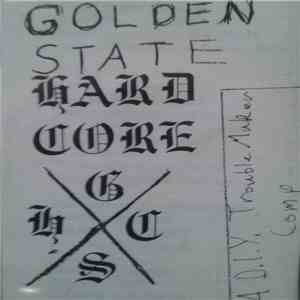 GOLDEN
STATE
HARD
CORE
G
H C
S
A D.I.Y. Trouble Maker
Comp